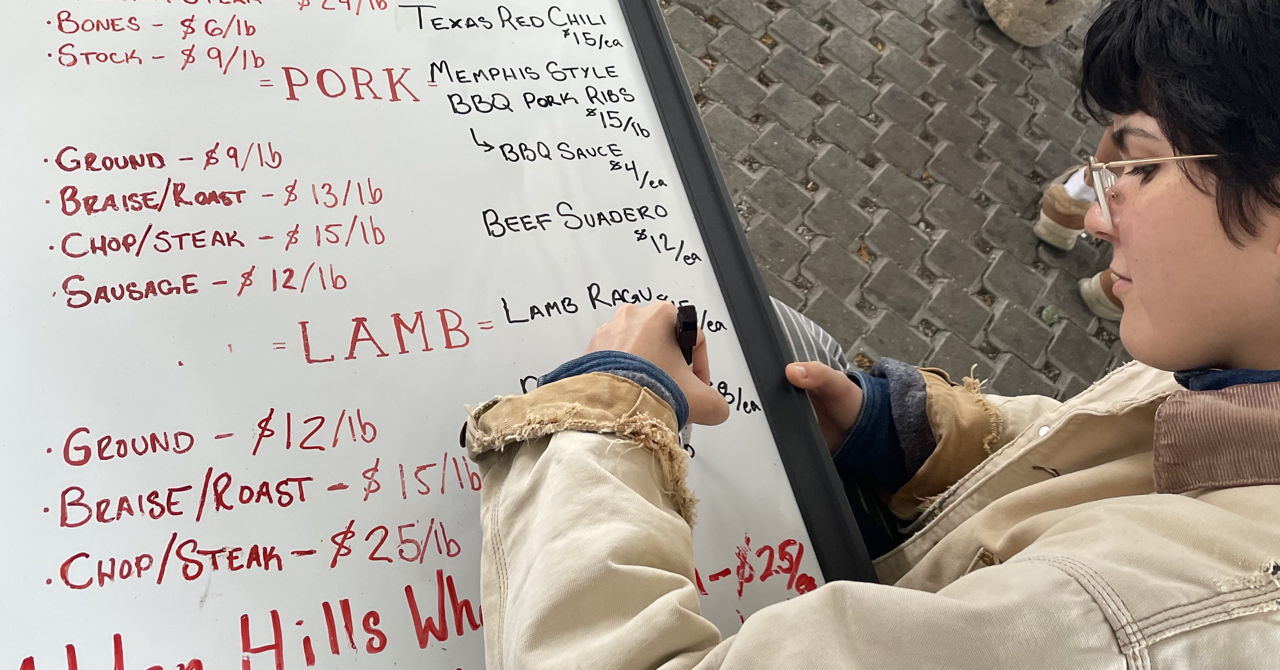 $24/lb
· BONES - $6/lb
· STOCK - $9/lb
= PORK =
· GROUND - $9/lb
· BRAISE/ROAST - $13/lb
· CHOP/STEAK - $15/lb
· SAUSAGE - $12/lb
= LAMB =
· GROUND - $12/lb
· BRAISE/ROAST - $15/lb
· CHOP/STEAK - $25/lb
Hills
TEXAS RED CHILI
$15/ea
MEMPHIS STYLE
BBQ PORK RIBS
$15/lb
↳ BBQ SAUCE
$4/ea
BEEF SUADERO
$12/ea
LAMB RAGU
/ea
8/ea
- $25/ea